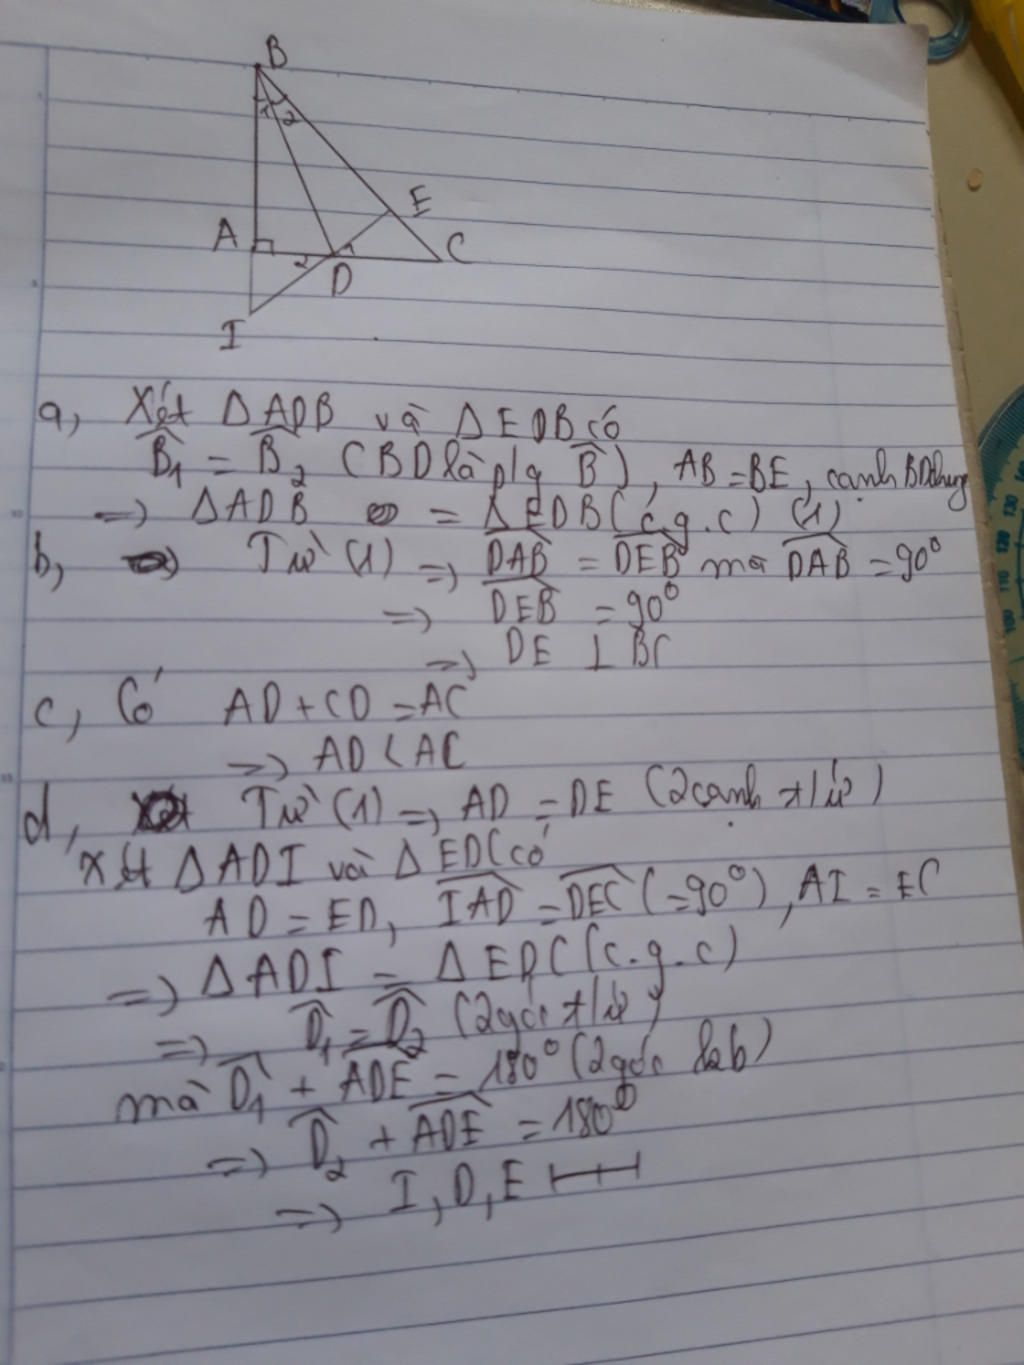 B
1 2
E
A
C
2 1
D
I
a, Xét ΔADB và ΔEDB có
B̂₁ = B̂₂ (BD là p/g B̂), AB = BE, cạnh BD chung
=> ΔADB = ΔEDB (c.g.c) (1)
b, Từ (1) => DAB̂ = DEB̂ mà DAB̂ = 90°
=> DEB̂ = 90°
=> DE ⊥ BC
c, Có AD + CD = AC
=> AD < AC
d, Từ (1) => AD = DE (2 cạnh t/ứ)
Xét ΔADI và ΔEDC có
AD = ED, IAD̂ = DEĈ (= 90°), AI = EC
=> ΔADI = ΔEDC (c.g.c)
=> D̂₁ = D̂₂ (2 góc t/ứ)
mà D̂₁ + ADÊ = 180° (2 góc kb)
=> D̂₂ + ADÊ = 180°
=> I, D, E